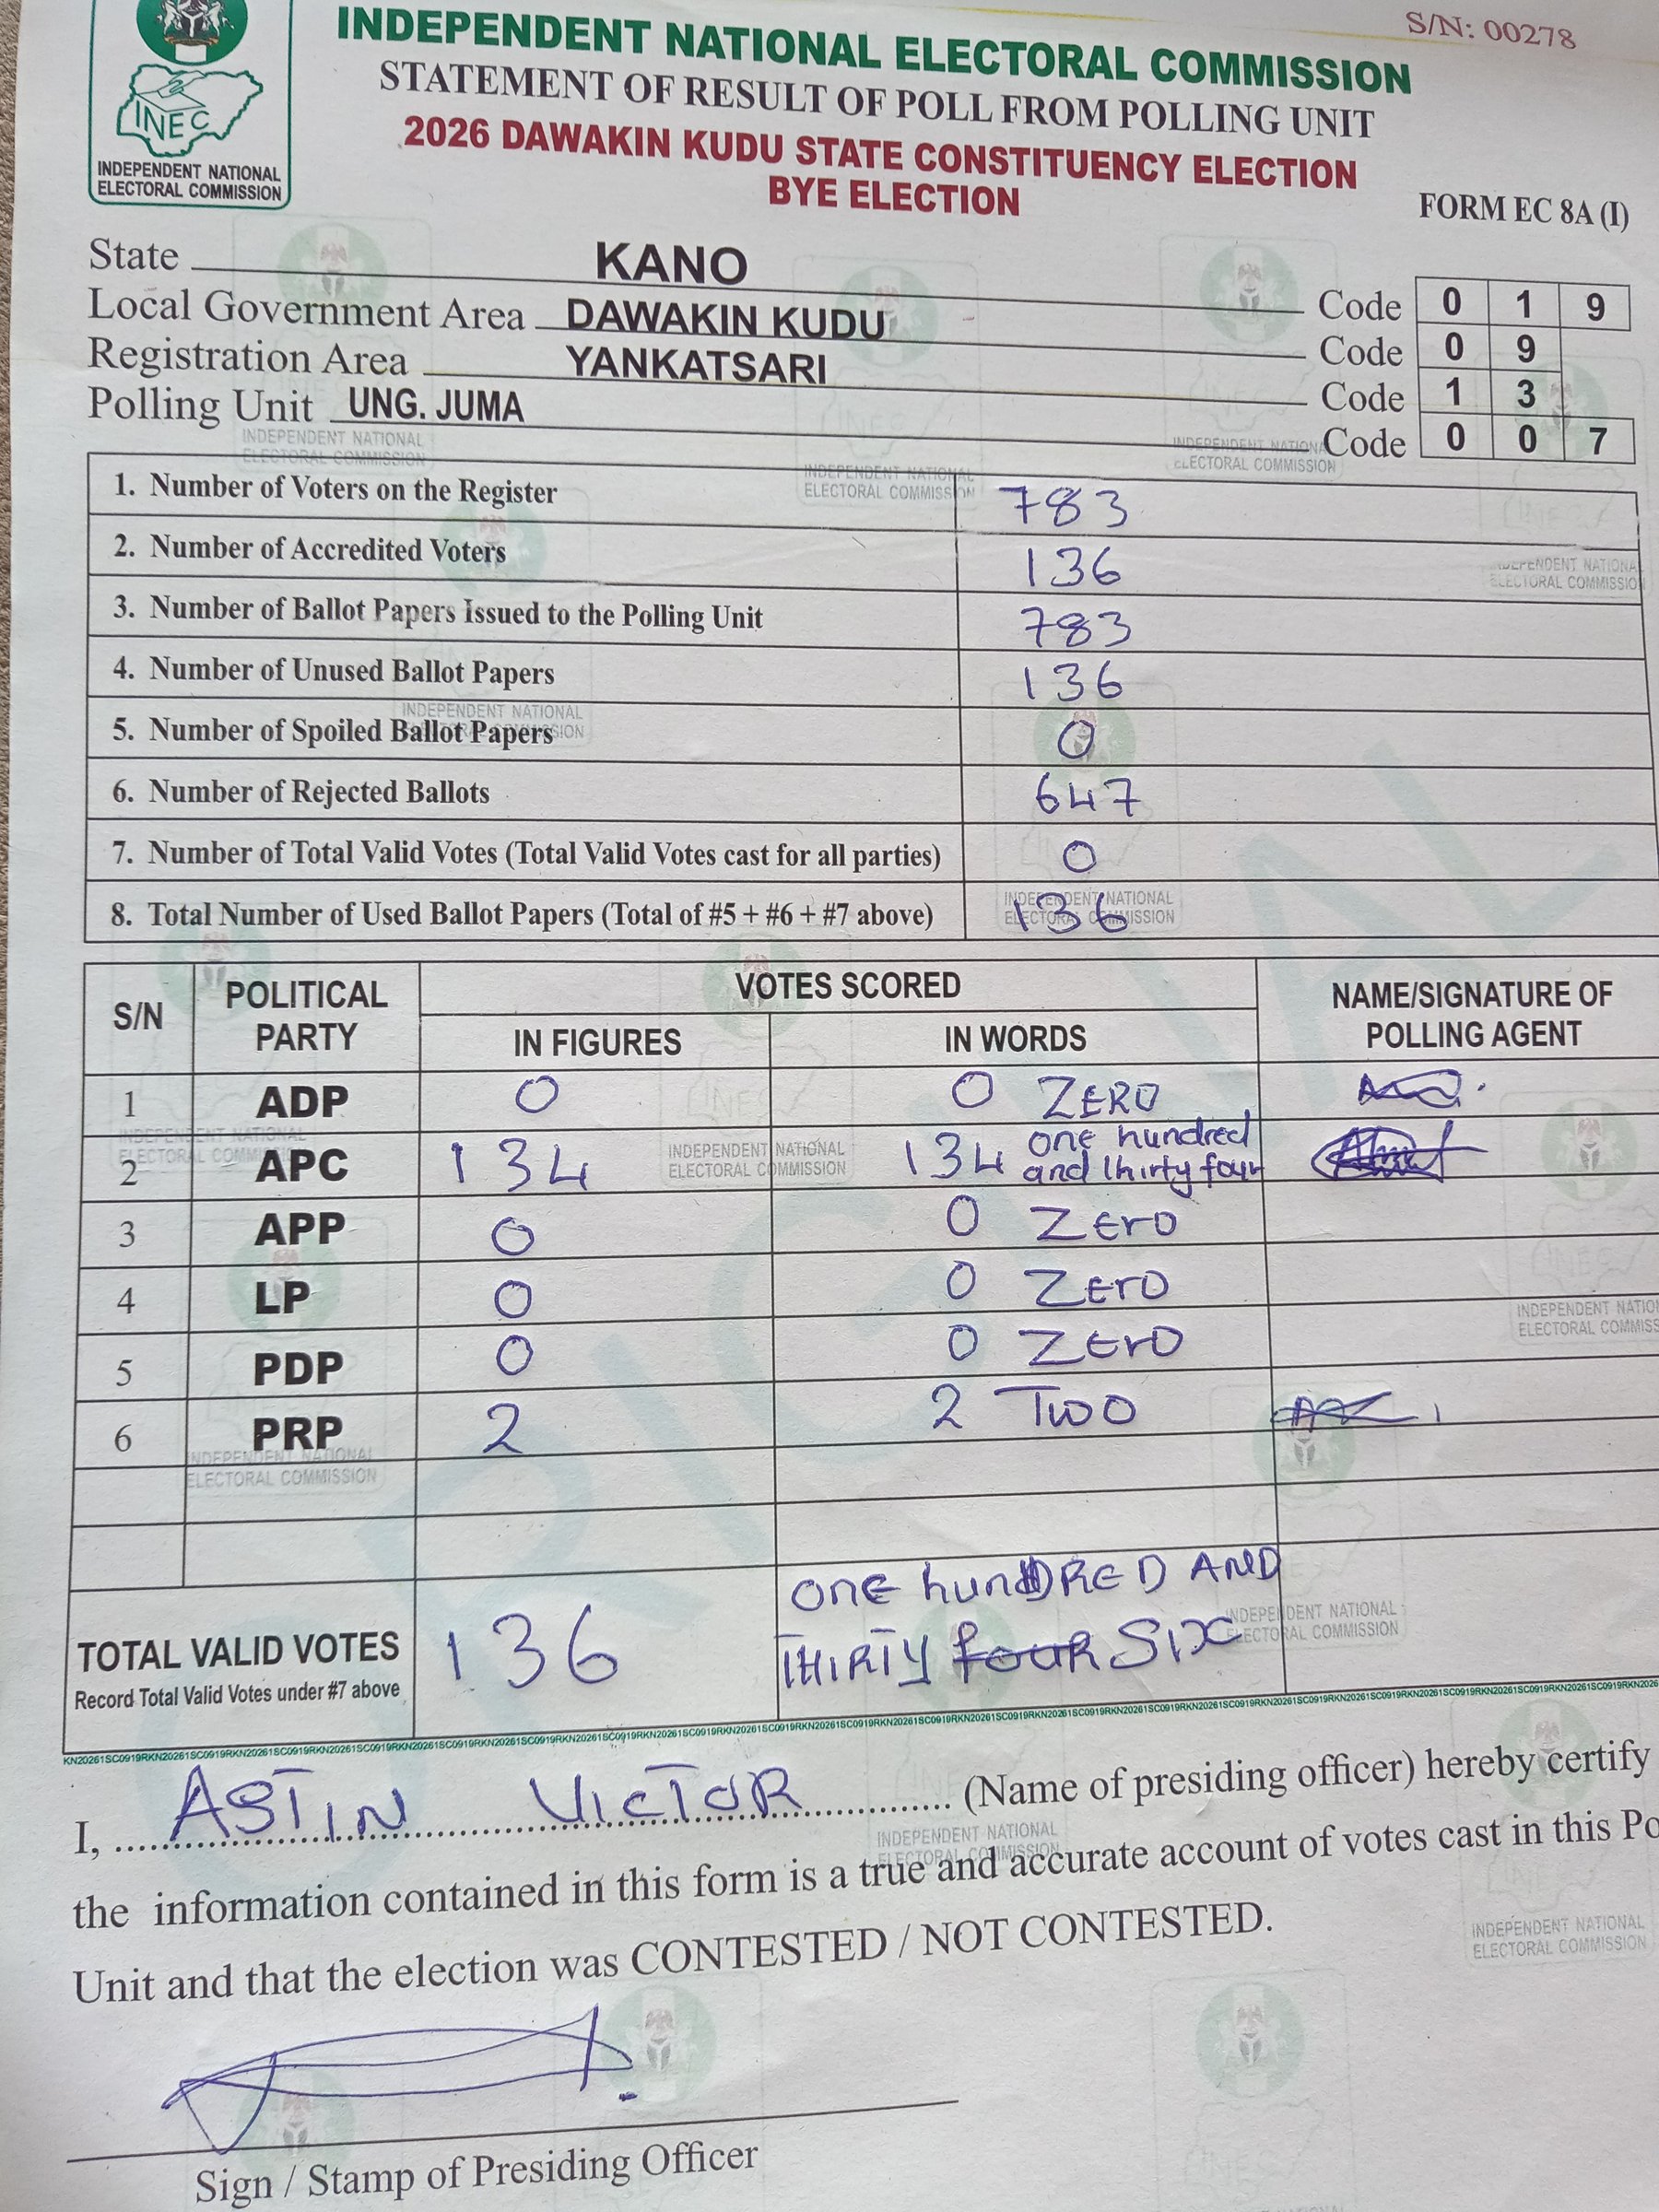 S/N: 00278
INDEPENDENT NATIONAL ELECTORAL COMMISSION
STATEMENT OF RESULT OF POLL FROM POLLING UNIT
2026 DAWAKIN KUDU STATE CONSTITUENCY ELECTION
BYE ELECTION
INEC
INDEPENDENT NATIONAL
ELECTORAL COMMISSION
FORM EC 8A (I)
State KANO Code 0 1 9
Local Government Area DAWAKIN KUDU Code 0 9
Registration Area YANKATSARI Code 1 3
Polling Unit UNG. JUMA Code 0 0 7
1. Number of Voters on the Register 783
2. Number of Accredited Voters 136
3. Number of Ballot Papers Issued to the Polling Unit 783
4. Number of Unused Ballot Papers 136
5. Number of Spoiled Ballot Papers 0
6. Number of Rejected Ballots 647
7. Number of Total Valid Votes (Total Valid Votes cast for all parties) 0
8. Total Number of Used Ballot Papers (Total of #5 + #6 + #7 above) 136
S/N POLITICAL PARTY VOTES SCORED NAME/SIGNATURE OF POLLING AGENT
IN FIGURES IN WORDS
1 ADP 0 0 ZERO
2 APC 134 134 one hundred and thirty four
3 APP 0 0 Zero
4 LP 0 0 Zero
5 PDP 0 0 Zero
6 PRP 2 2 Two
TOTAL VALID VOTES 136 ONE hunDRED AND
Record Total Valid Votes under #7 above THIRTY fouR SIX
KN20261SC0919RKN20261SC0919RKN20261SC0919RKN20261SC0919RKN20261SC0919RKN20261SC0919RKN20261SC0919RKN20261SC0919RKN20261SC0919RKN20261SC0919RKN20261SC0919RKN20261SC0919RKN20261SC0919RKN2026
I, ASTIN VICTOR (Name of presiding officer) hereby certify
the information contained in this form is a true and accurate account of votes cast in this Po
Unit and that the election was CONTESTED / NOT CONTESTED.
Sign / Stamp of Presiding Officer
ORIGINAL